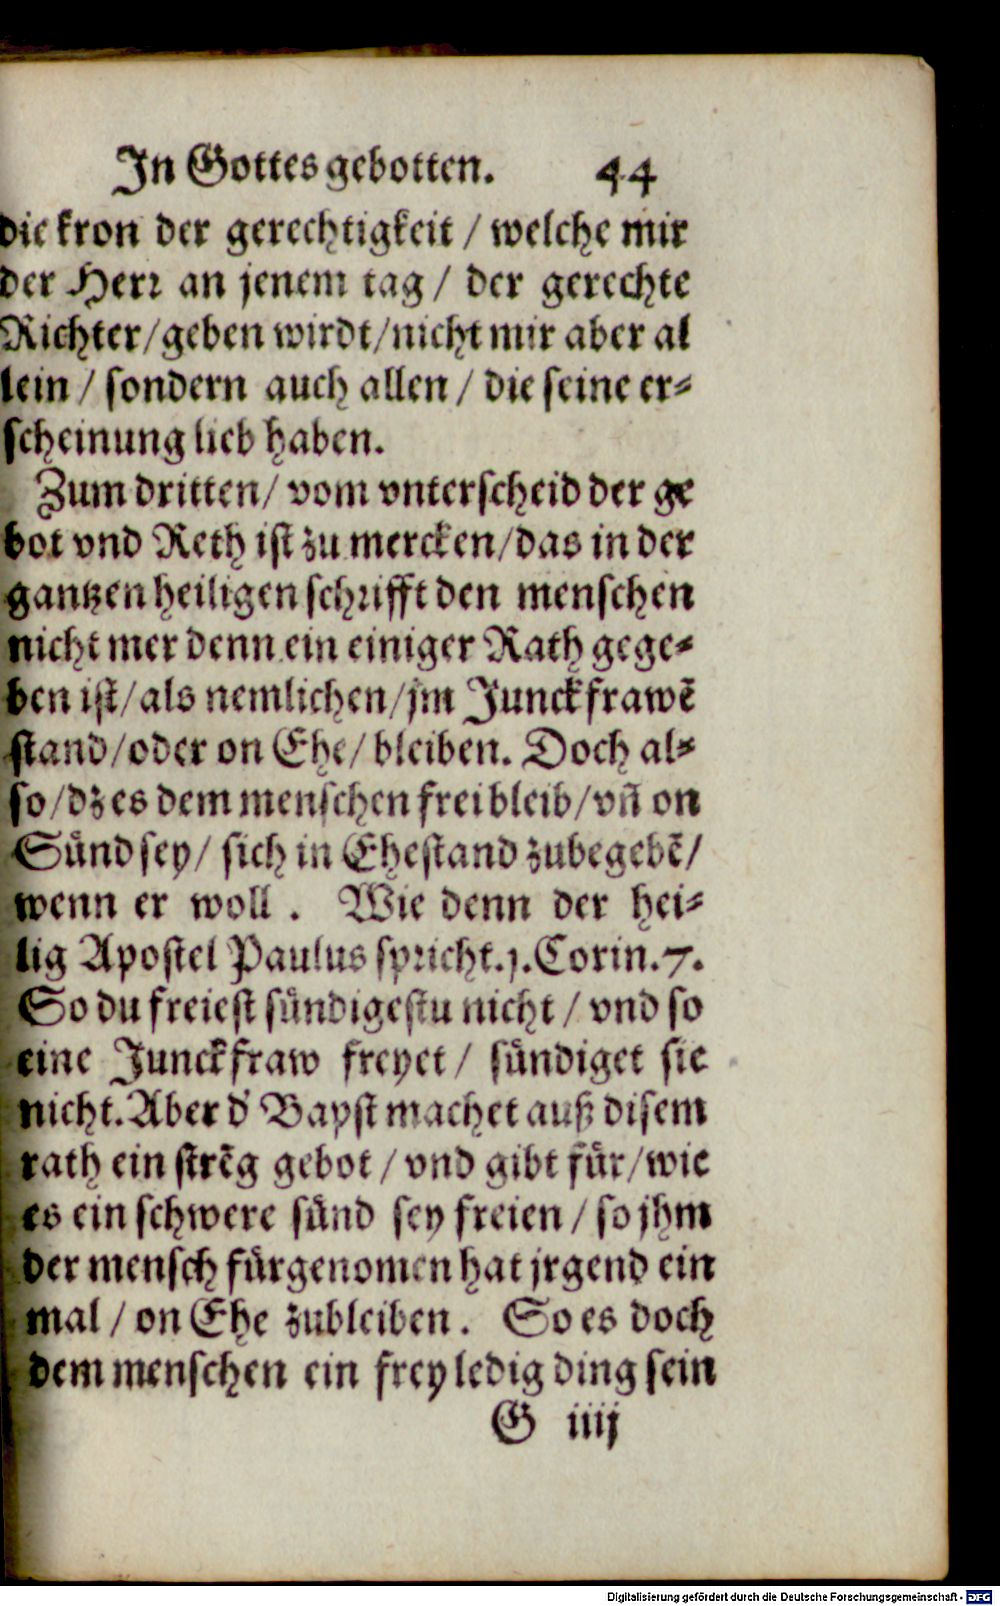 In Gottes gebotten. 44
die kron der gerechtigkeit / welche mir
der Herr an jenem tag / der gerechte
Richter/geben wirdt/nicht mir aber al
lein / sondern auch allen / die seine er⸗
scheinung lieb haben.
Zum dritten/ vom vnterscheid der ge
bot vnd Reth ist zu mercken/das in der
gantzen heiligen schrifft den menschen
nicht mer denn ein einiger Rath gege⸗
ben ist/als nemlichen/jm Junckfrawē
stand/oder on Ehe/ bleiben. Doch al⸗
so/dz es dem menschen frei bleib/vñ on
Sünd sey/ sich in Ehestand zubegebē/
wenn er woll . Wie denn der hei⸗
lig Apostel Paulus spricht.1.Corin.7.
So du freiest sündigestu nicht / vnd so
eine Junckfraw freyet / sündiget sie
nicht. Aber d' Bapst machet auß disem
rath ein strēg gebot / vnd gibt für/wie
es ein schwere sünd sey freien / so jhm
der mensch fürgenomen hat jrgend ein
mal / on Ehe zubleiben . So es doch
dem menschen ein frey ledig ding sein
G iiij
Digitalisierung gefördert durch die Deutsche Forschungsgemeinschaft - DFG